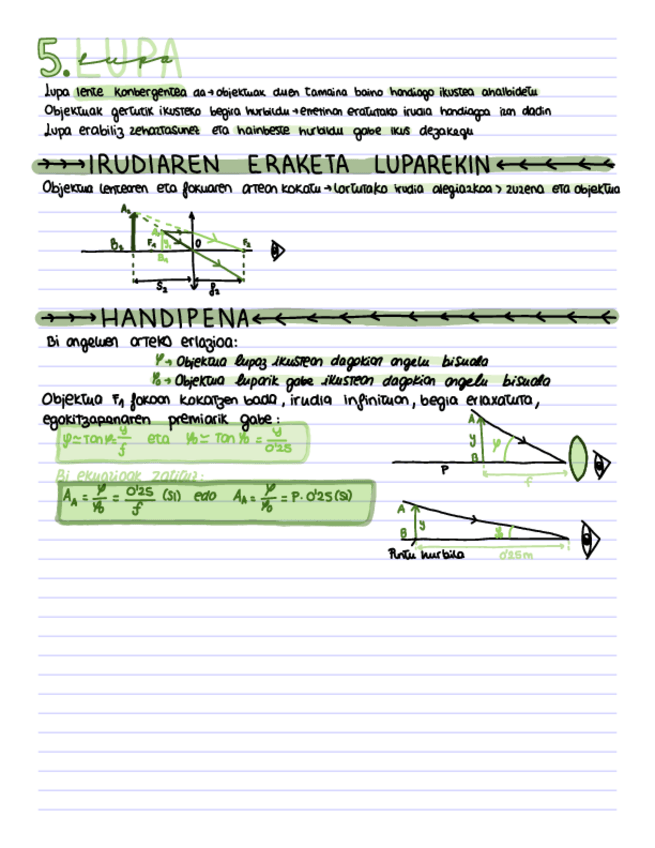 5. LUPA
Lupa
Lupa lente konbergentea da → objektuak duen tamaina baino handiago ikustea ahalbidetu
Objektuak gertutik ikusteko begira hurbildu → erretinan eratutako irudia handiagoa izan dadin
Lupa erabiliz zehaztasunez eta hainbeste hurbildu gabe ikus dezakegu
IRUDIAREN ERAKETA LUPAREKIN
Objektua lentearen eta fokuaren artean kokatu → lortutako irudia alegiazkoa > zuzena eta objektua
A2
A1
B2 F1 y1 O F2
B1
S2 f2
HANDIPENA
Bi angeluen arteko erlazioa:
φ → Objektua lupaz ikustean dagokion angelu bisuala
φ0 → Objektua luparik gabe ikustean dagokion angelu bisuala
Objektua F1 fokoan kokatzen bada, irudia infinituan, begia erlaxatuta,
egokitzapenaren premiarik gabe:
φ ≃ Tan φ = y/f eta φ0 ≃ Tan φ0 = y/0'25
A
y φ
B
P f
Bi ekuazioak zatituz:
AA = φ/φ0 = 0'25/f (SI) edo AA = φ/φ0 = P · 0'25 (SI)
A
B y φ0
Puntu hurbila 0'25m